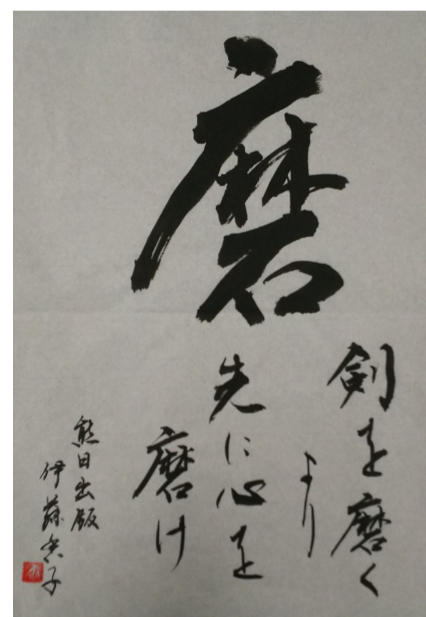 磨
剣を磨く
より
先に心を
磨け
熊日出版
伊藤香子